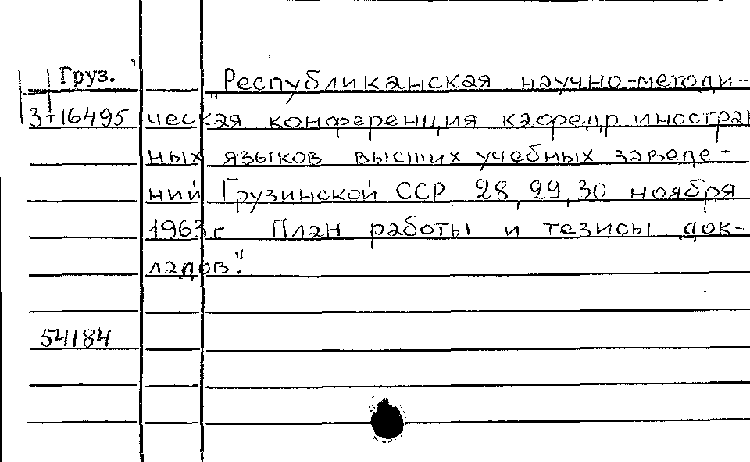 Груз.
"Республиканская научно-методи-
3-16495 ческая конференция кафедр иностран
ных языков высших учебных заведе-
ний Грузинской ССР 28, 29, 30 ноября
1963 г. План работы и тезисы док-
ладов."
54184